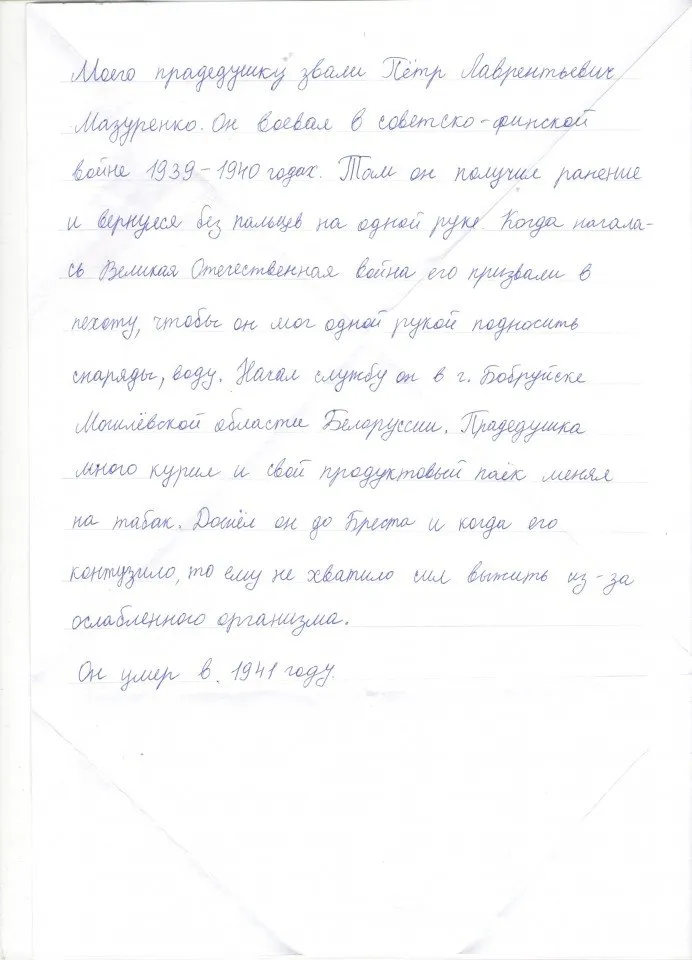 Моего прадедушку звали Пётр Лаврентьевич
Мазуренко. Он воевал в советско-финской
войне 1939-1940 годах. Там он получил ранение
и вернулся без пальцев на одной руке. Когда начала-
сь Великая Отечественная война его призвали в
пехоту, чтобы он мог одной рукой подносить
снаряды, воду. Начал службу он в г. Бобруйске
Могилёвской области Белоруссии. Прадедушка
много курил и свой продуктовый паёк менял
на табак. Дошёл он до Бреста и когда его
контузило, то ему не хватило сил выжить из-за
ослабленного организма.
Он умер в. 1941 году.